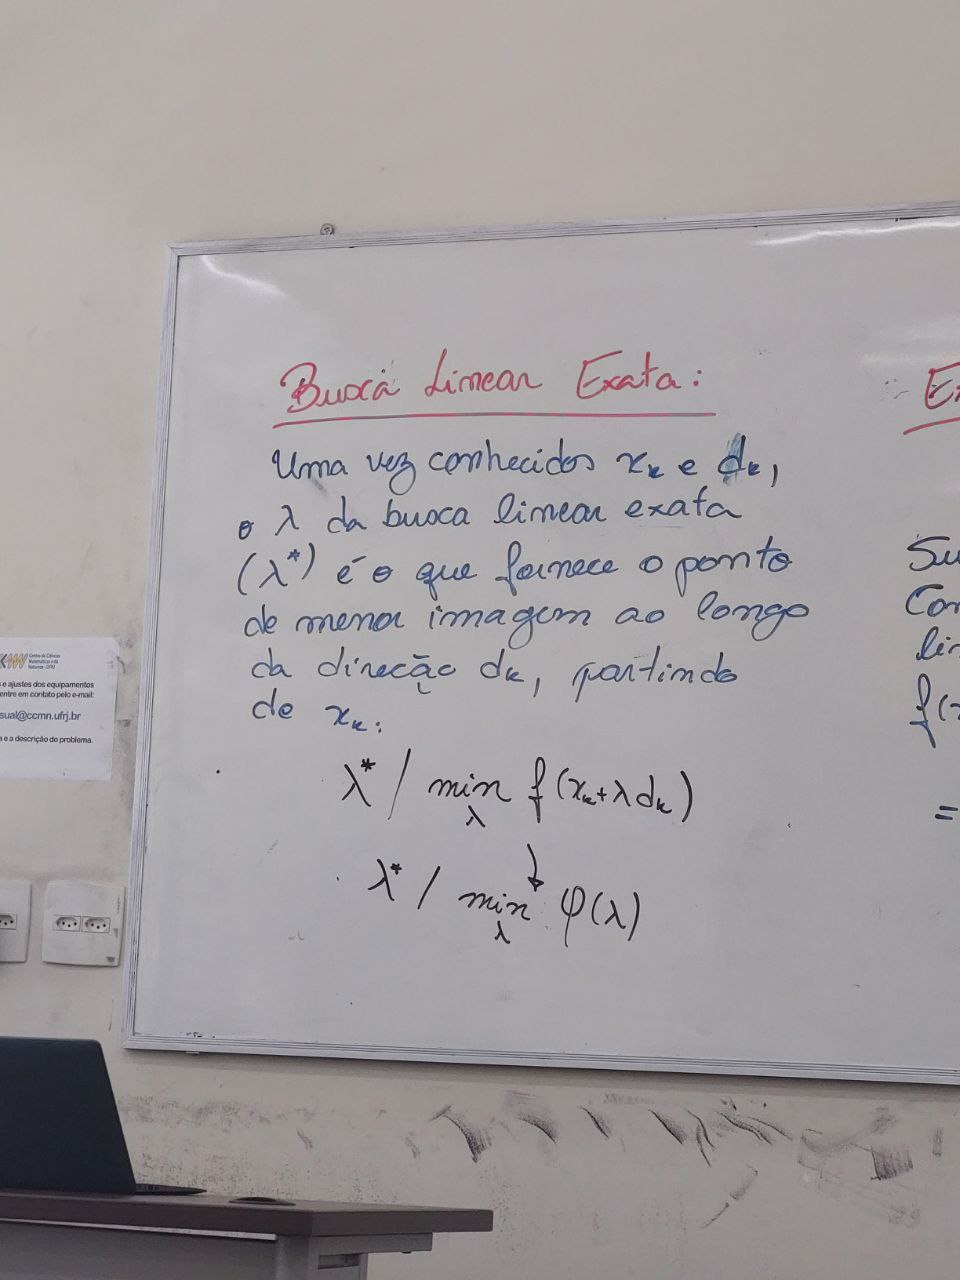 Busca Linear Exata:
Uma vez conhecidos xₖ e dₖ,
o λ da busca linear exata
(λ*) é o que fornece o ponto
de menor imagem ao longo
da direção dₖ, partindo
de xₖ:
λ* / min f(xₖ+λdₖ)
λ
↓
λ* / min φ(λ)
λ
Su
Con
lin
f(x
=
Centro de Ciências
Matemáticas e da
Natureza - UFRJ
s e ajustes dos equipamentos
entre em contato pelo e-mail:
sual@ccmn.ufrj.br
a e a descrição do problema.